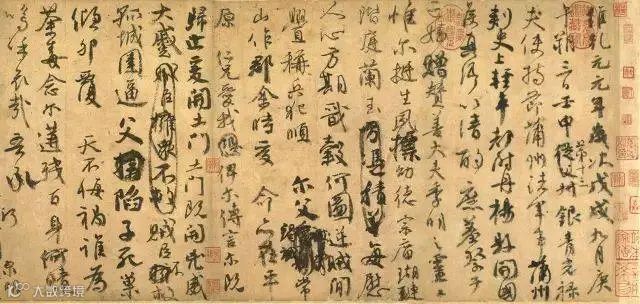 維乾元元年歲次戊戌九月庚
午朔三日壬申第十三從父銀青光祿
夫使持節蒲州諸軍事蒲州
刺史上輕車都尉丹楊縣開國
侯真卿以清酌庶羞祭于
亡姪贈贊善大夫季明之靈曰
惟爾挺生夙標幼德宗廟瑚璉
階庭蘭玉方憑積善每慰
人心方期戩穀何圖逆賊閒
釁稱兵犯順爾父常
山作郡余時受命亦在平
原仁兄愛我俾爾傳言爾既
歸止爰開土門土門既開兇威
大蹙賊臣擁眾不救賊臣不救
孤城圍逼父陷子死巢
傾卵覆天不悔禍誰為
荼毒念爾遘殘百身何贖
嗚呼哀哉吾承
大数跨境